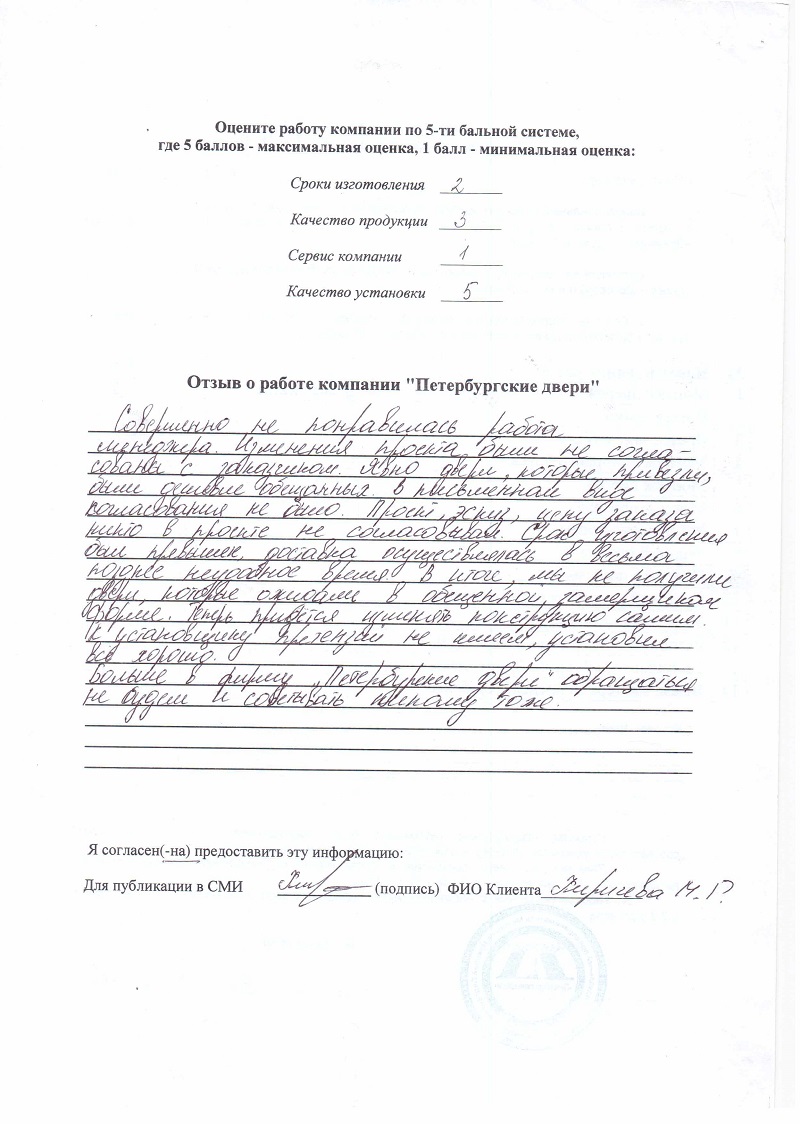 Оцените работу компании по 5-ти бальной системе,
где 5 баллов - максимальная оценка, 1 балл - минимальная оценка:
Сроки изготовления 2
Качество продукции 3
Сервис компании 1
Качество установки 5
Отзыв о работе компании "Петербургские двери"
Совершенно не понравилась работа
менеджера. Изменения проекта были не согла-
сованы с заказчиком. Явно двери, которые привезли,
были дешевле обещанных. В письменном виде
согласования не было. Проект, эскиз, цену заказа
никто в проекте не согласовывал. Срок изготовления
был превышен, доставка осуществлялась в весьма
позднее неудобное время. В итоге, мы не получили
двери, которые ожидали в обещенной замерщиком
форме. Теперь придётся конструкцию самим.
К установщику претензий не имеем, установил
всё хорошо.
Больше в фирму „Петербургские двери" обращаться
не будем и советывать никому тоже.
Я согласен(-на) предоставить эту информацию:
Для публикации в СМИ (подпись) ФИО Клиента